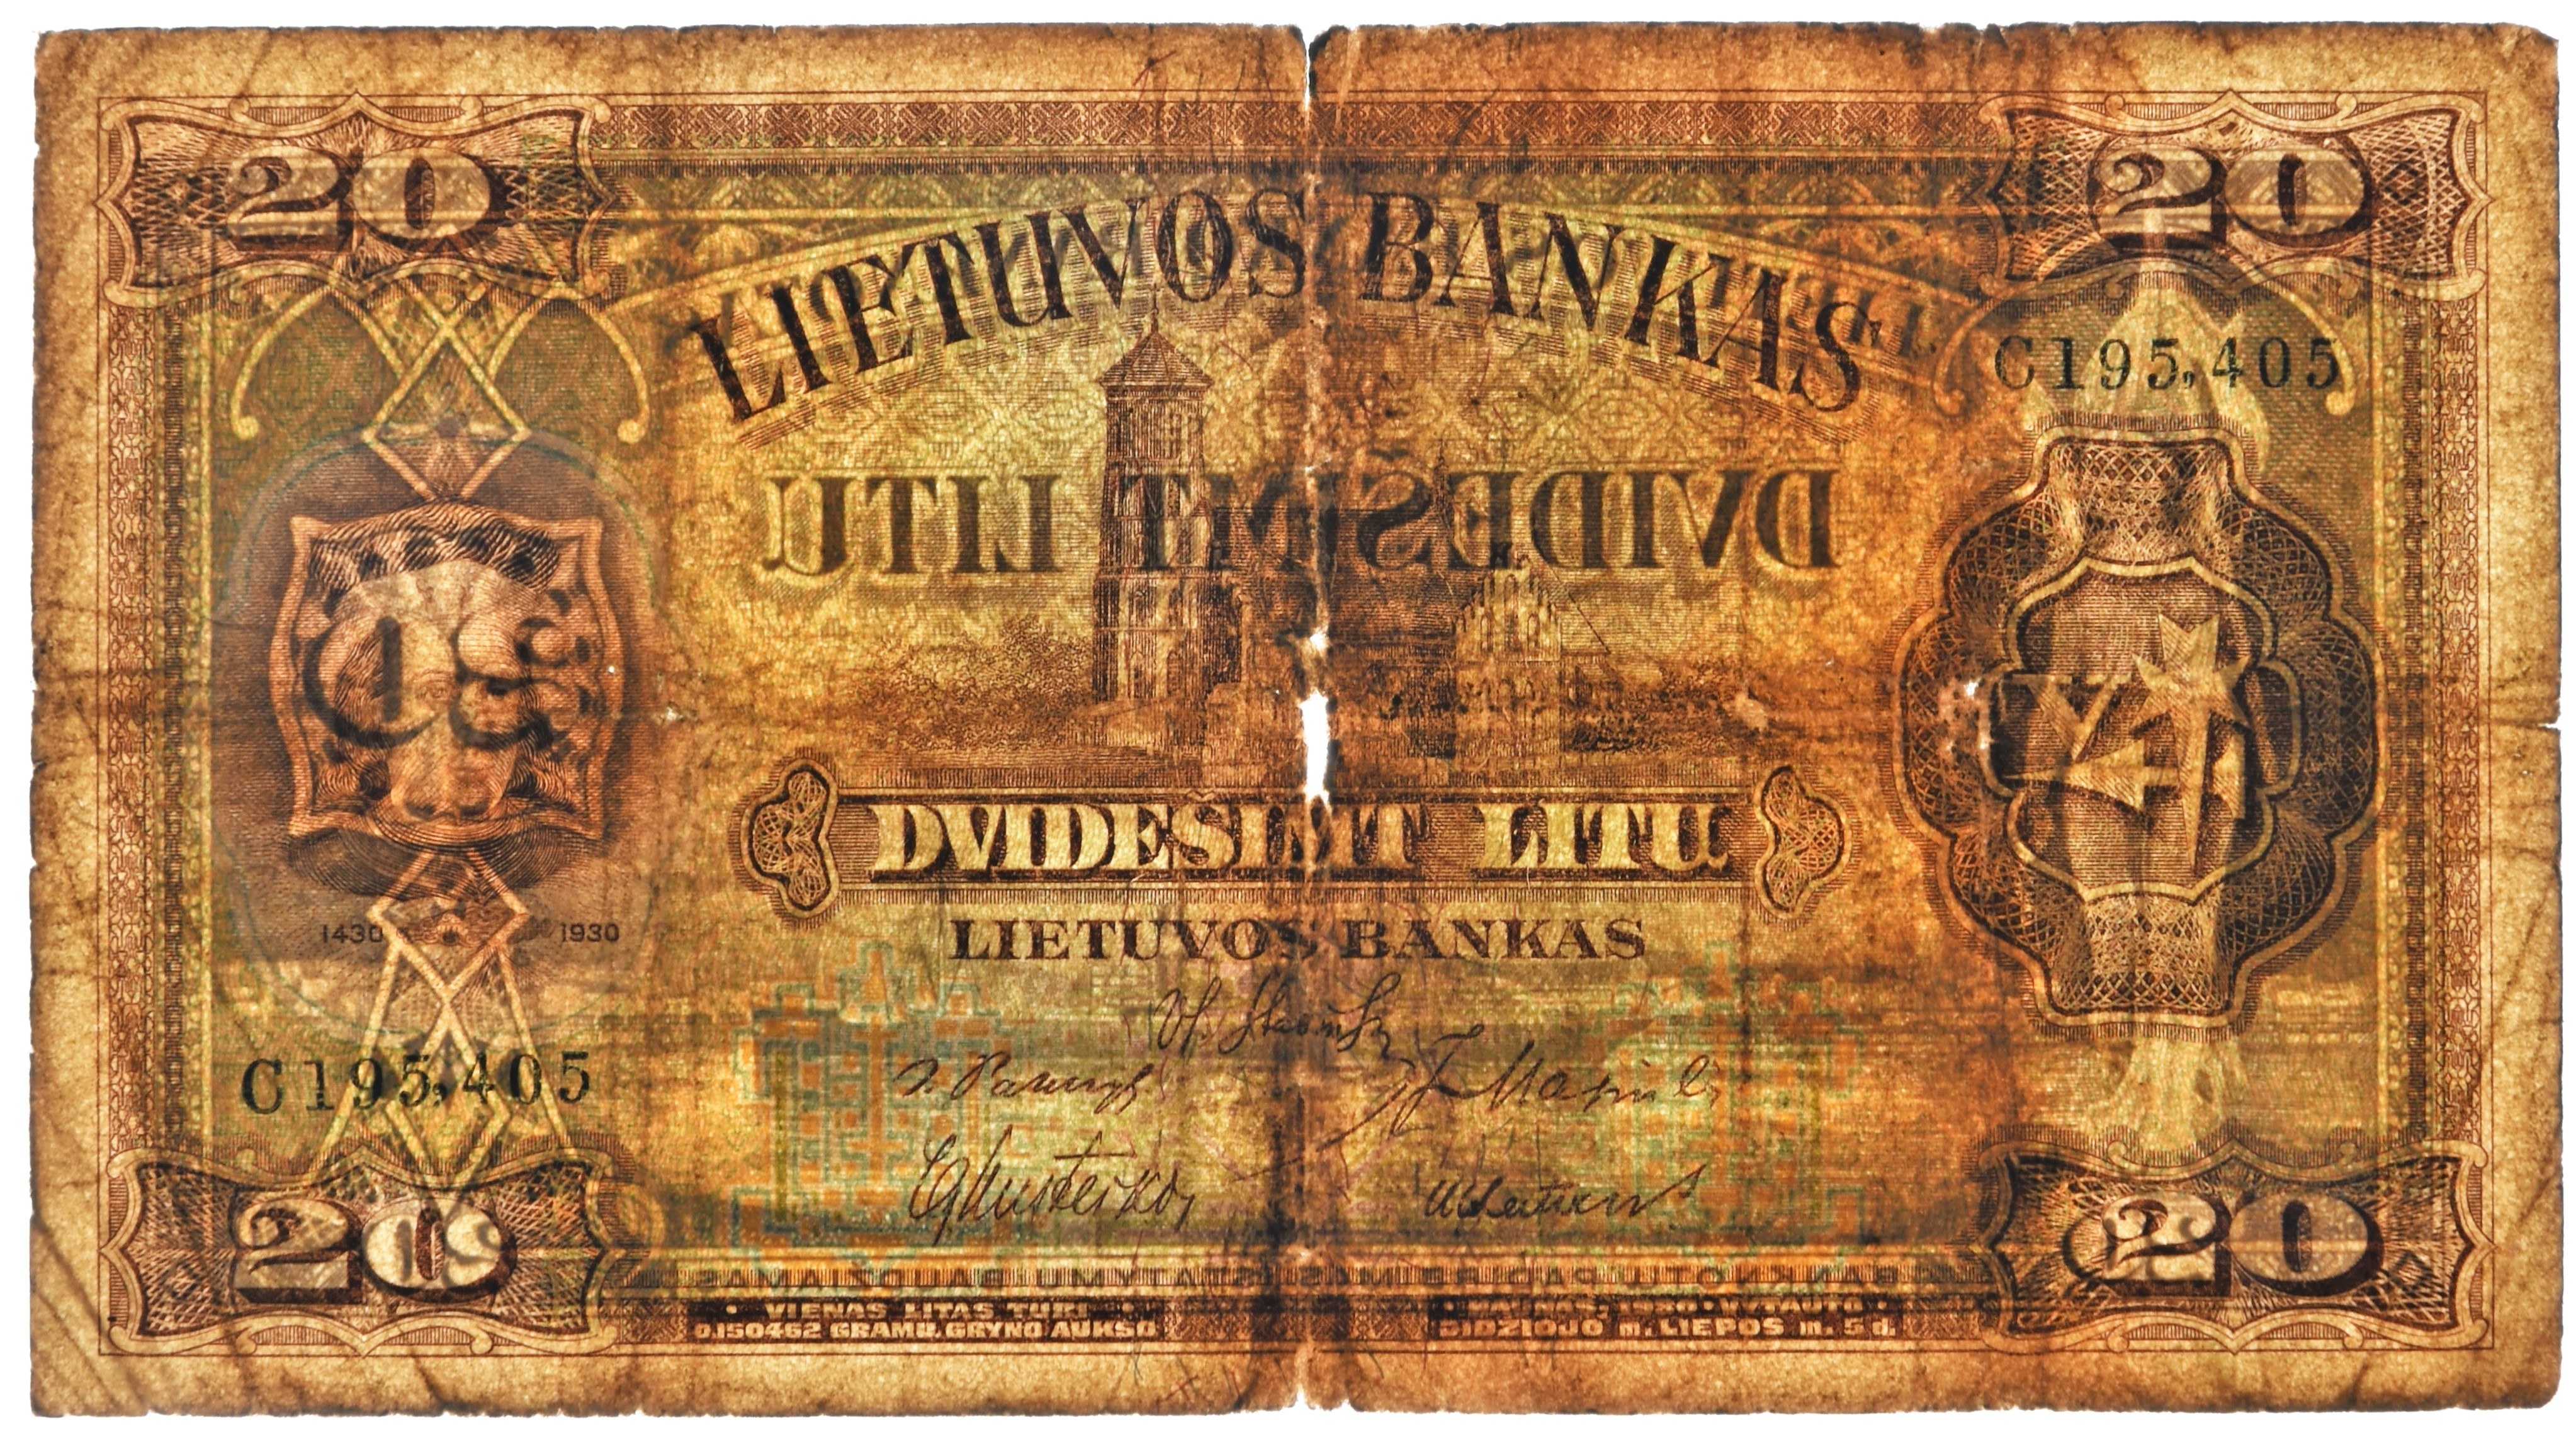 20 20
LIETUVOS BANKAS
C195,405
DVIDEŠIMT LITŲ
DVIDEŠIMT LITŲ
LIETUVOS BANKAS
1430 1930
C195,405
20 20
VIENAS LITAS TURI
0,150462 GRAMŲ GRYNO AUKSO
KAUNAS, 1930 • VYTAUTO •
DIDŽIOJO m. LIEPOS m. 5 d.